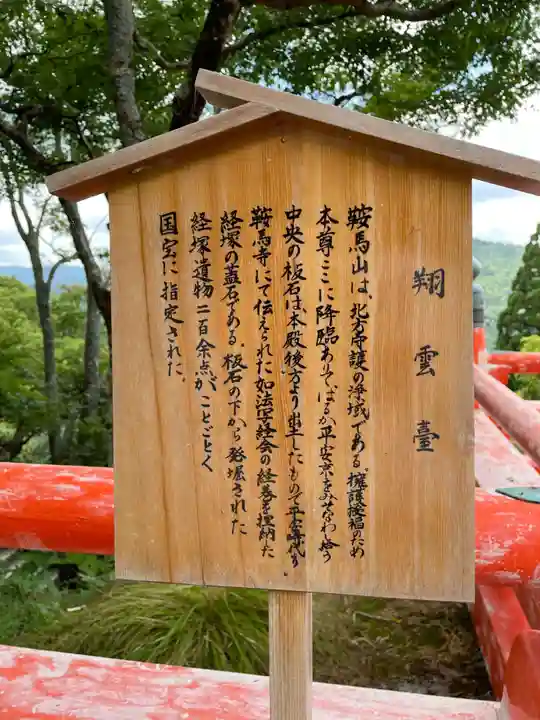 翔雲臺
鞍馬山は、北方守護の浄域である。擁護授福のため
本尊ここに降臨ありてはるか平安京をみそなわし給う
中央の板石は、本殿後方より出土したもので平安時代から
鞍馬寺にて伝えられた如法写経会の経巻を埋納した
経塚の蓋石である。板石の下から発掘された
経塚遺物二百余点がことごとく
国宝に指定された。